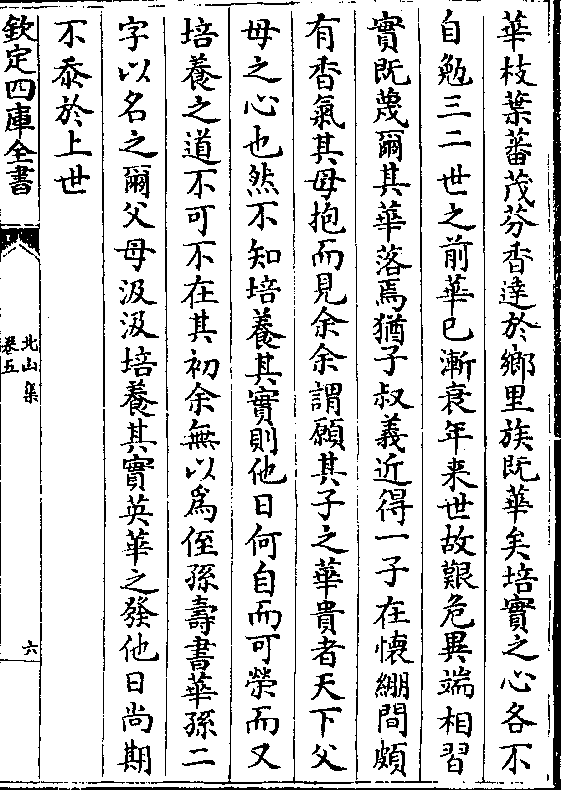 華枝葉蕃茂芬香達於鄉里族既華矣培實之心各不
自勉三二世之前華已漸衰年来世故艱危異端相習
實既蔑爾其華落焉猶子叔義近得一子在懷繃間頗
有香氣其母抱而見余余謂願其子之華貴者天下父
母之心也然不知培養其實則他日何自而可榮而又
培養之道不可不在其初余無以為侄孫壽書華孫二
字以名之爾父母汲汲培養其實英華之發他日尚期
不忝於上世
欽定四庫全書
北山集
卷五
六